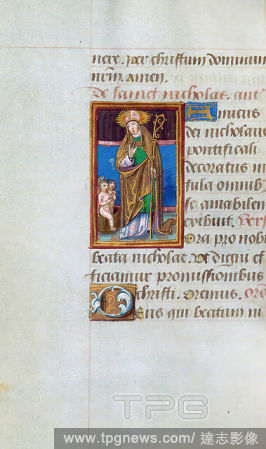 nere. per christum dominum
nrm. amen.
De sanct nicholas. ante
Amicus
dei nicholaus
pontificali
decoratus in
fula omnib
se amabilem
exibuit. Vers
Ora pro nobi
beata nicholae. Ut digni ef
ficiamur promissionibus
christi. Oremus. Oro
Deus qui beatum ni
TPG
www.tpgnews.com/ 達志影像